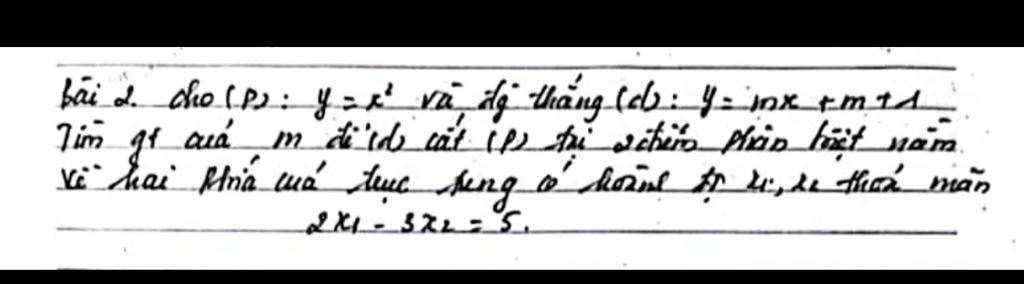 bài 2. cho (P): y = x² và đg thẳng (d): y = mx + m + 1
Tìm gt của m để (d) cắt (P) tại 2 điểm phân biệt nằm
về hai phía của trục tung có hoành độ x₁, x₂ thoả mãn
2x₁ - 3x₂ = 5.